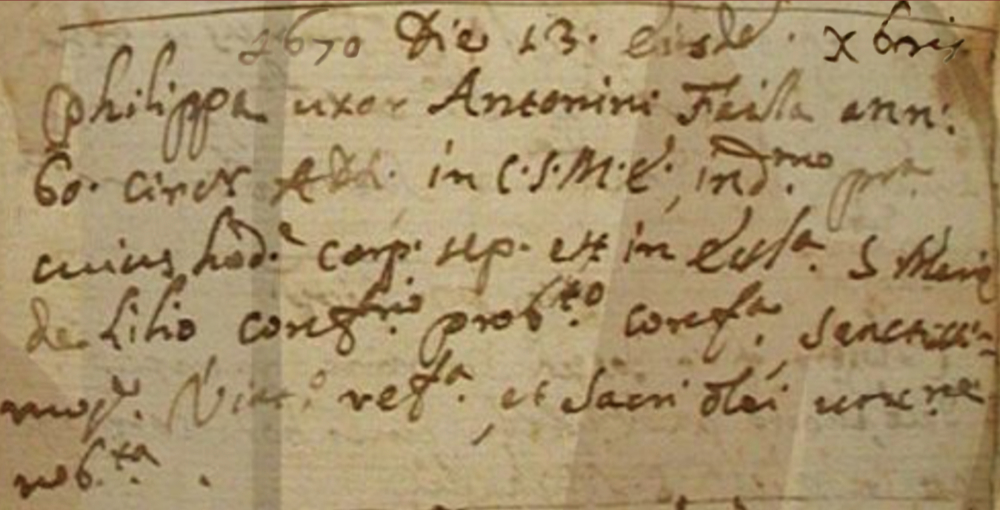 1670 Die 13. eiusdē. Xbris
Philippa uxor Antonini Failla ann:
60. circr in C.S.M.E. ind.mo
cuius hod.e corp. sep. est in Eccl.a S Mari
de Lilio conf prob.to conf.a. Sanctissi-
Viat.o ref.a. et Sacri olei
rob.ta.